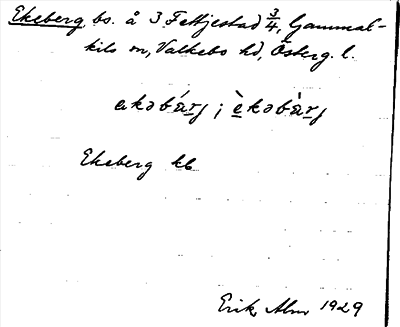 Ekeberg, bs. å 3 Fettjestad 3/4, Gammal-
kils sn, Valkebo hd, Österg. l.
ekəbærj ; èkəbàrj
Ekeberg kb
Erik Alm 1929